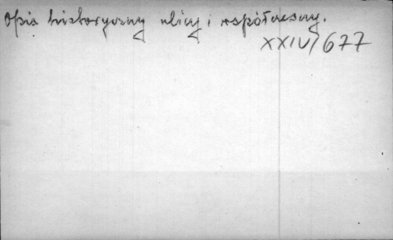 Opis historyczny ulicy i współczesny.
XXIV/677